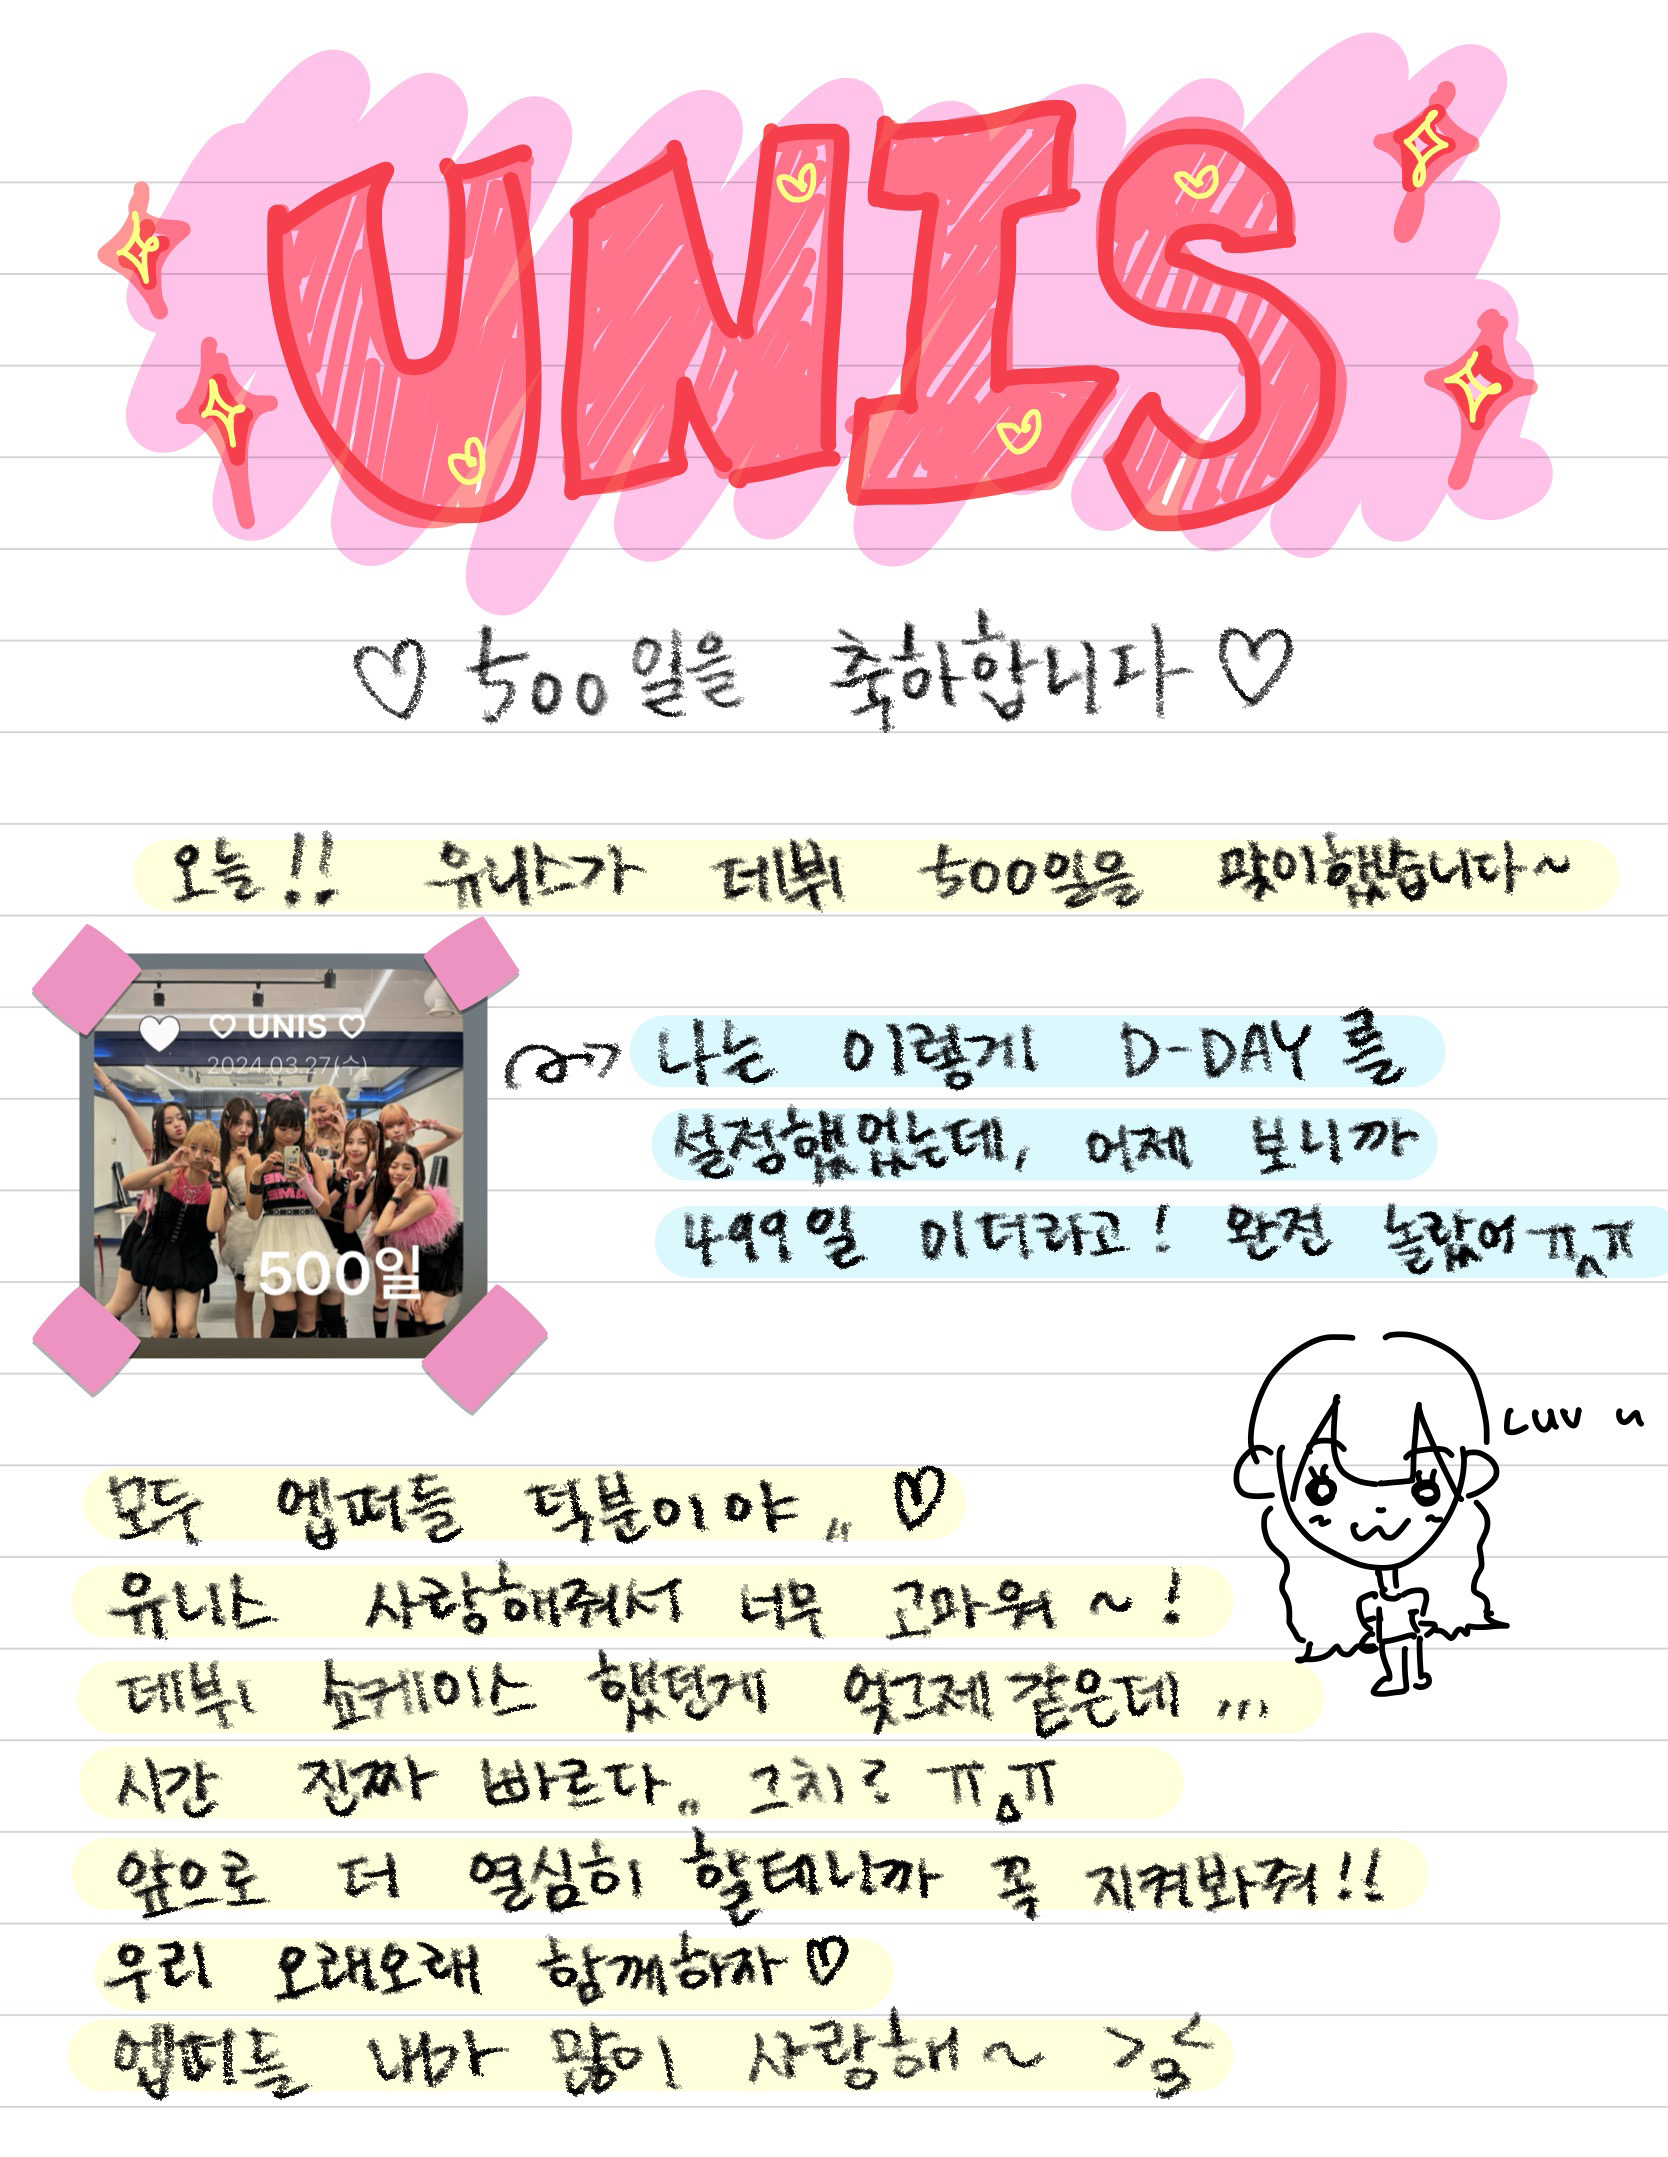 UNIS
♡ 500일을 축하합니다 ♡
오늘!! 유니스가 데뷔 500일을 맞이했습니다~
♡ UNIS ♡
2024.03.27(수)
500일
나는 이렇게 D-DAY를
설정했었는데, 어제 보니까
499일 이더라고! 완전 놀랐어ㅠㅅㅠ
LUV u
모두 엡퍼들 덕분이야 ,, ♡
유니스 사랑해줘서 너무 고마워 ~ !
데뷔 쇼케이스 했던게 엊그제같은데 ,,,
시간 진짜 빠르다,, 그치? ㅠ△ㅠ
앞으로 더 열심히 할테니까 꼭 지켜봐줘!!
우리 오래오래 함께하자♡
엡퍼들 내가 많이 사랑해~ >3<